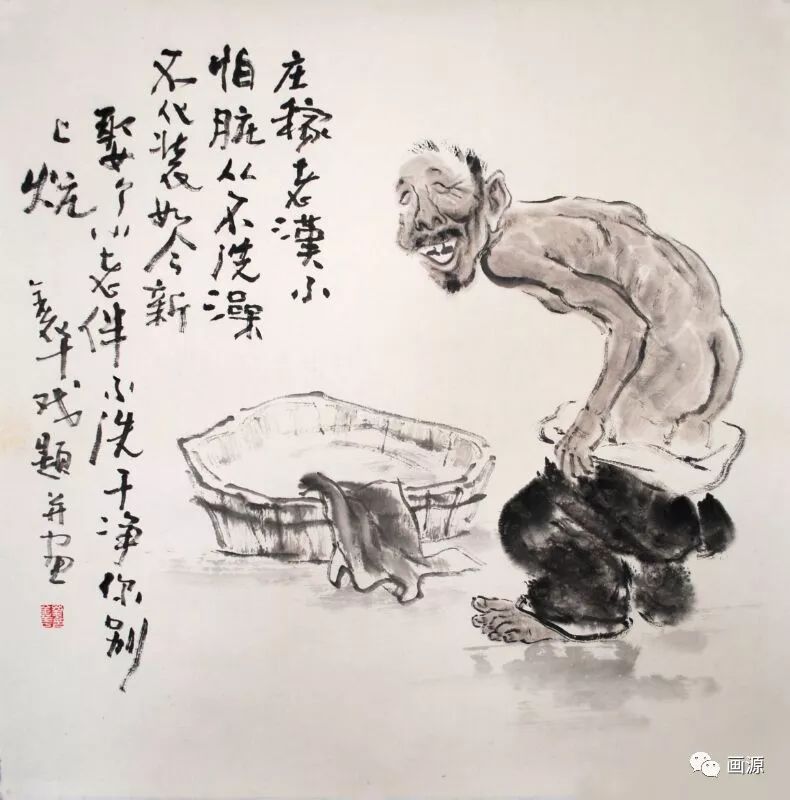 庄稼老漢不
怕脏从不洗澡
不代装如今新
娶个小老伴不洗干净你别
上炕
华戏题并画
画源